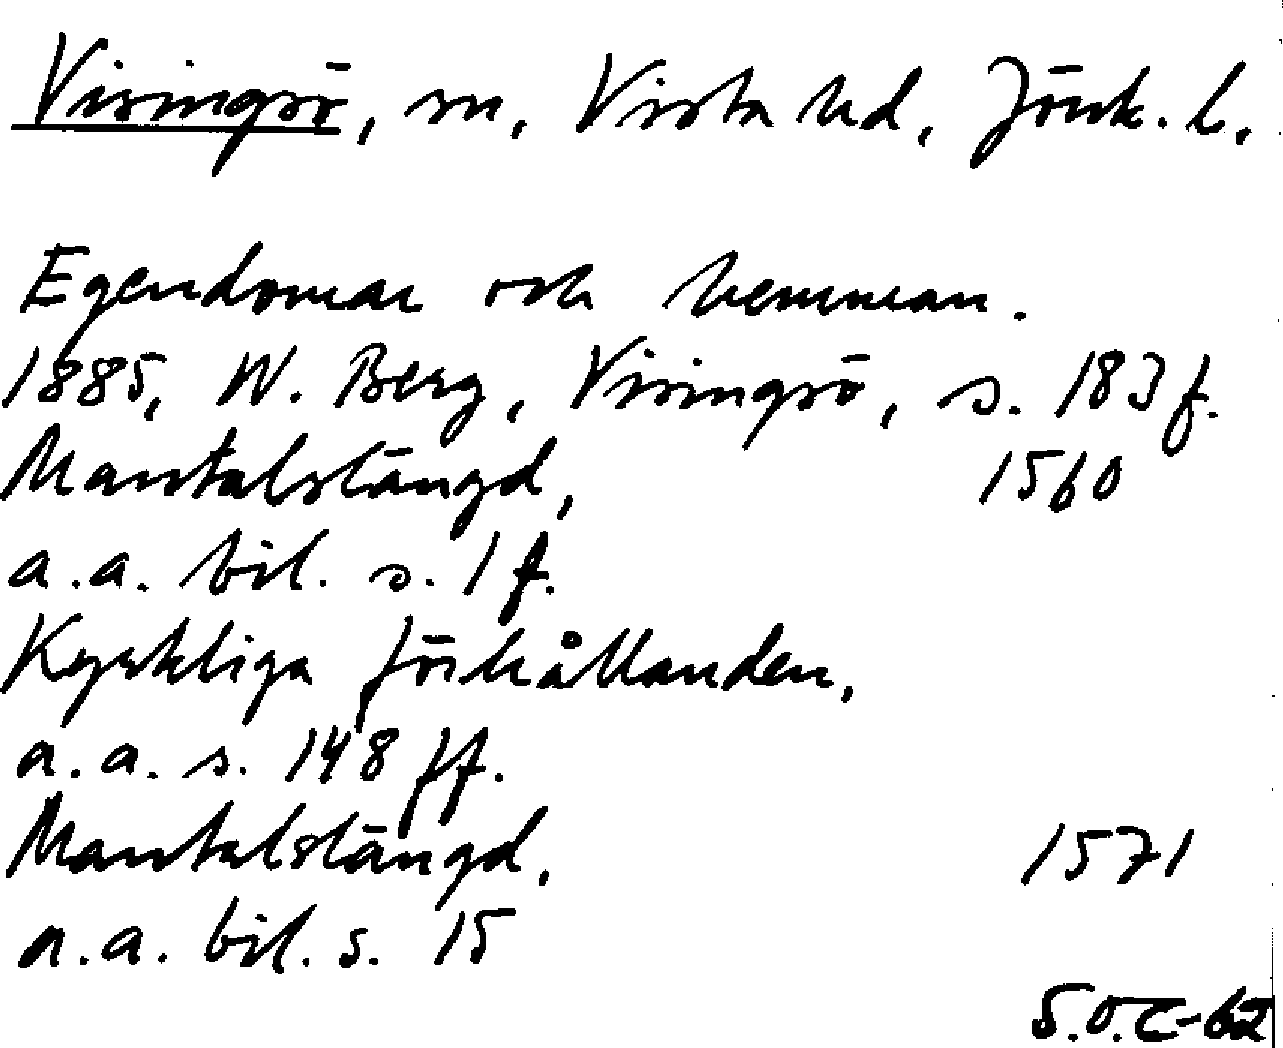 Visingsö, sn, Vista hd, Jönk. l.
Egendomar och hemman.
1885, W. Berg, Visingsö, s. 183 f.
Mantalslängd, 1560
a.a. bil. s. 1 f.
Kyrkliga förhållanden,
a.a. s. 148 ff.
Mantalslängd, 1571
a.a. bil. s. 15
S.O.C-62